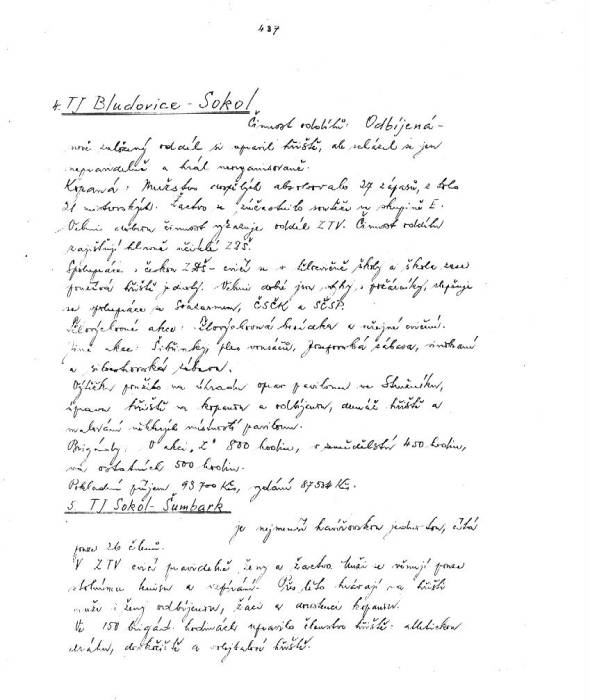 437
4. TJ Bludovice - Sokol
Činnost oddílů: Odbíjená -
nově založený oddíl si upravil hřiště, ale scházel se jen
nepravidelně a hrál neorganisovaně.
Kopaná: Mužstvo dospělých absolvovalo 27 zápasů, z toho
21 mistrovských. Žactvo se zúčastnilo soutěže ve skupině E.
Velmi dobrou činnost vykazuje oddíl ZTV. Činnost oddílu
zajišťují hlavně učitelé ZDŠ.
Spolupráce s českou ZDŠ - cvičí se v tělocvičně školy a škola zase
používá hřiště jednoty. Velmi dobré jsou styky s požárníky, zlepšuje
se spolupráce se Svazarmem, ČSČK a SČSP.
Tělovýchovné akce: Tělovýchovná besídka a veřejné cvičení.
Jiné akce: Šibřinky, ples vousáčů, josefovská zábava, vinobraní
a silvestrovská zábava.
Výtěžek použito na úhradu oprav pavilonu ve Stružníku,
úpravu hřiště na kopanou a odbíjenou,
malování některých místností pavilonu.
Brigády: V akci „Z" 800 hodin, v zemědělství 450 hodin,
na ostatních 500 hodin.
Pokladní příjem 93 700 Kčs, vydání 87 534 Kčs.
5. TJ Sokol - Šumbark
je nejmenší havířovskou jednotou, čítá
pouze 26 členů.
V ZTV cvičí pravidelně ženy a žactvo. Muži se věnují pouze
stolnímu tenisu a vzpírání. Přes léto hrávají na hřišti
muži i ženy odbíjenou, žáci a dorostenci kopanou.
Ve 150 brigád. hodinách upravilo členstvo hřiště - atletickou
dráhu, doskočiště a volejbalové hřiště.